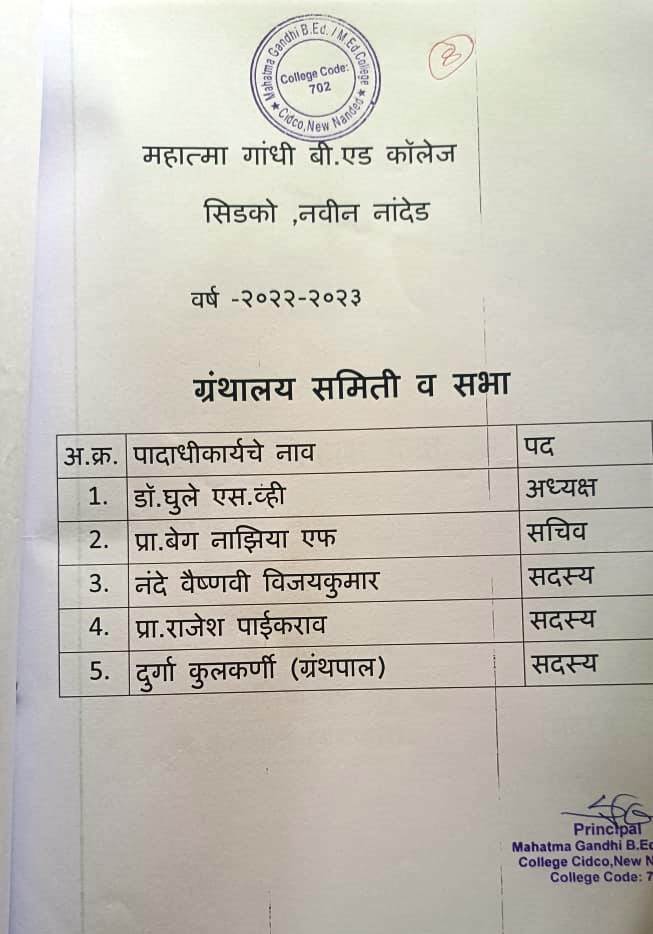 Mahatma Gandhi B.Ed. / M.Ed. College
College Code:
702
★ Cidco, New Nanded ★
8
महात्मा गांधी बी.एड कॉलेज
सिडको ,नवीन नांदेड
वर्ष -२०२२-२०२३
ग्रंथालय समिती व सभा
अ.क्र. पादाधीकार्यचे नाव पद
1. डॉ.घुले एस.व्ही अध्यक्ष
2. प्रा.बेग नाझिया एफ सचिव
3. नंदे वैष्णवी विजयकुमार सदस्य
4. प्रा.राजेश पाईकराव सदस्य
5. दुर्गा कुलकर्णी (ग्रंथपाल) सदस्य
Principal
Mahatma Gandhi B.Ed
College Cidco,New N
College Code: 7